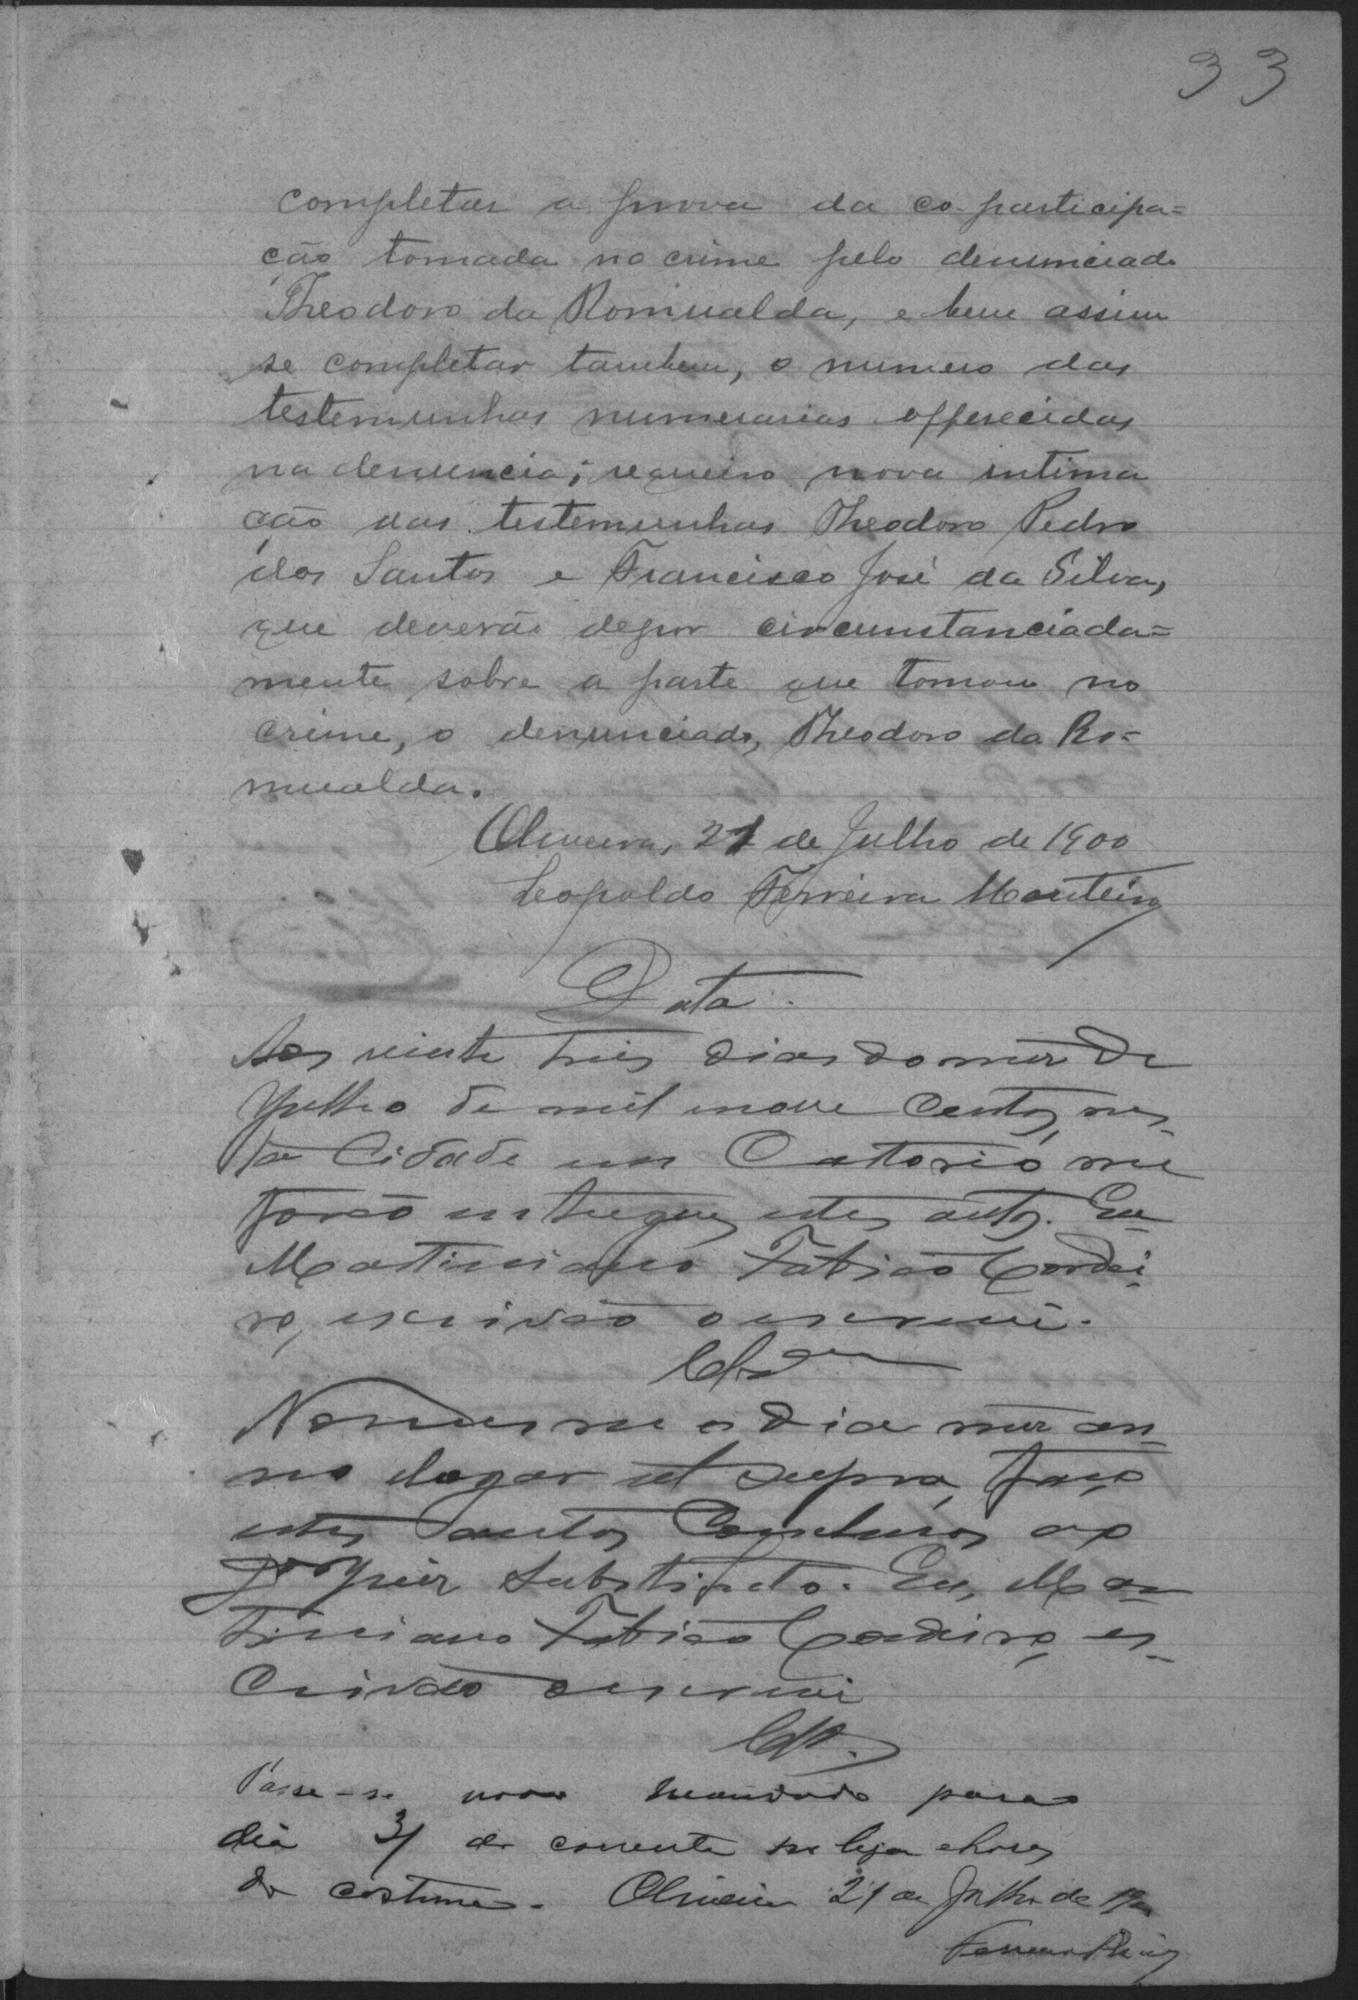 33
completar a prova da co-participa=
ção tomada no crime pelo denunciado
Theodoro da Romualda, e bem assim
se completar tambem, o numero das
testemunhas numerarias offerecidas
na denuncia; requeiro nova intima
ção das testemunhas Theodoro Pedro
dos Santos e Francisco José da Silva,
que deverão depor circumstanciada=
mente sobre a parte que tomou no
crime, o denunciado, Theodoro da Ro=
mualda.
Oliveira, 21 de Julho de 1900
Leopoldo Ferreira Monteiro
Data.
Aos vinte tres dias do mez de
Julho de mil nove centos, nes-
ta Cidade em Cartorio me
forão entregues estes autos. Eu
Martiniano Fabiao Cordei-
ro, escrivão o escrevi.
Clsão
No mesmo dia mez an-
no e logar ut supra, faço
estes autos Conclusos ao
Juiz Substituto. Eu, Mar-
tiniano Fabiao Cordeiro, es-
crivão o escrevi
Passe-se novo mandado para o
dia 31 do corrente no logar e horas
do costume. Oliveira 21 de Julho de 1900